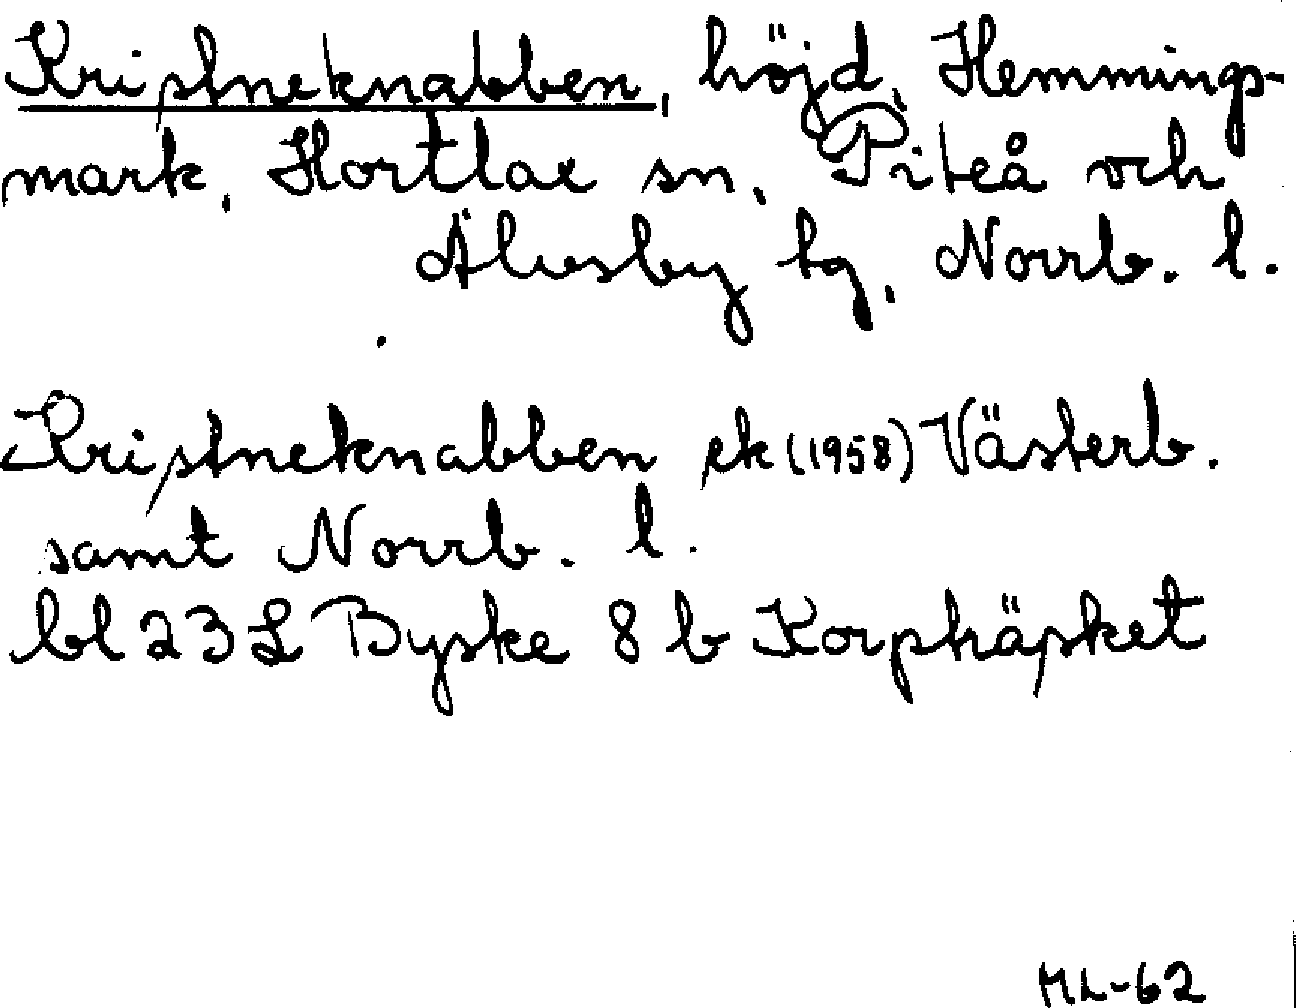 Kristneknabben, höjd, Hemmings-
mark, Hortlax sn, Piteå och
Älvsby tg, Norrb. l.
Kristneknabben ek (1958) Västerb.
samt Norrb. l.
bl 23 L Byske 8 b Korphäsket
ML-62